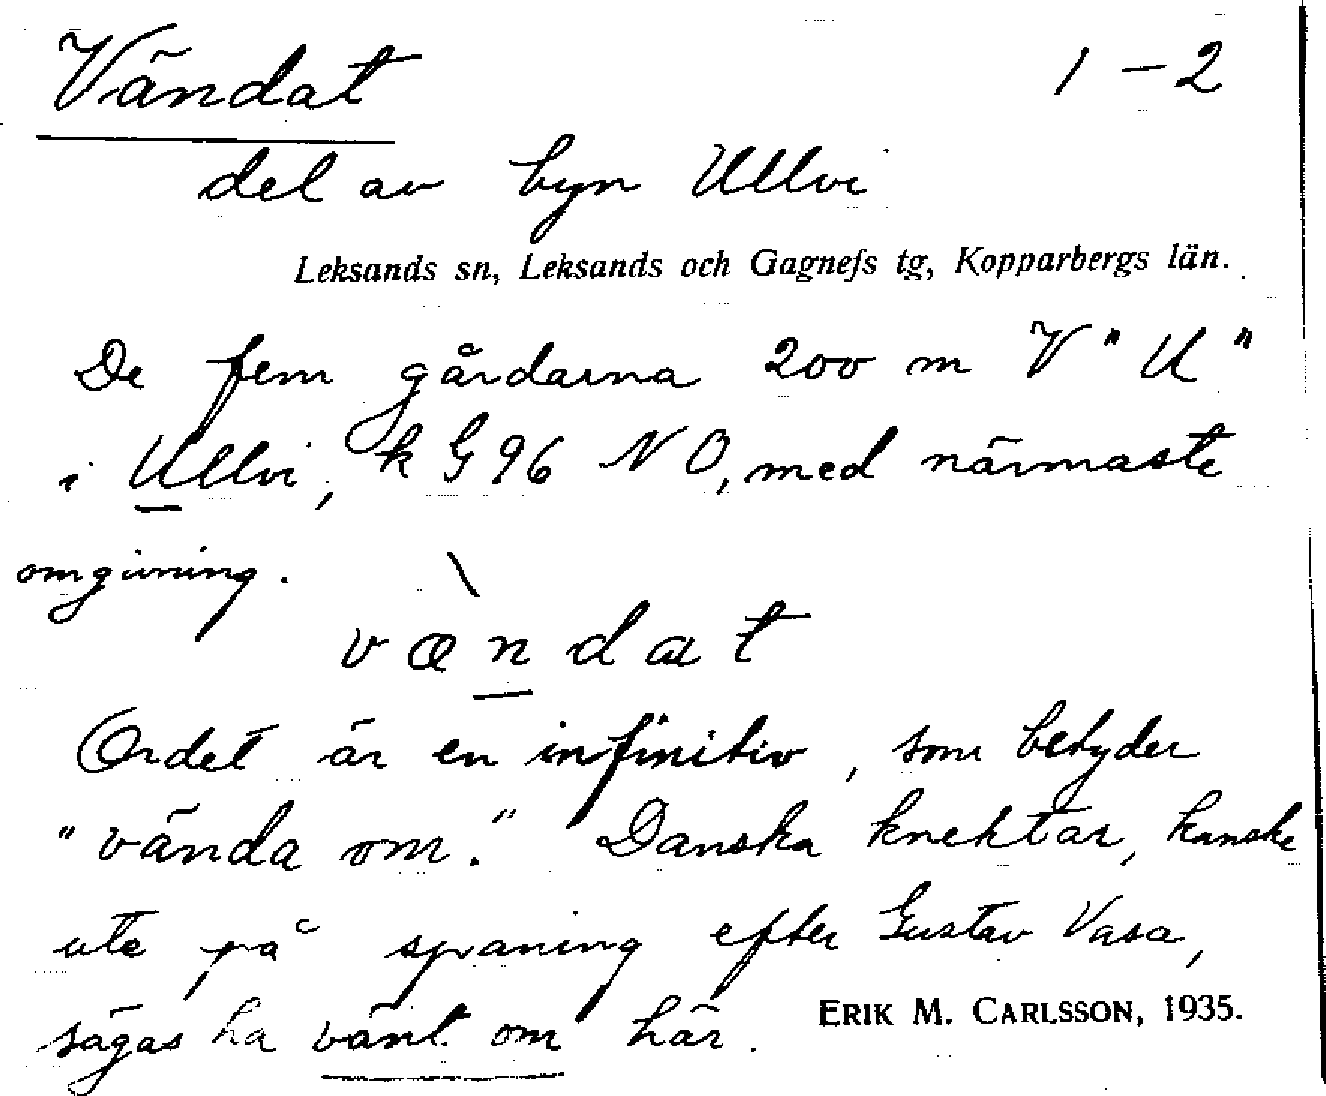 Vändat 1-2
del av byn Ullvi
Leksands sn, Leksands och Gagnefs tg, Kopparbergs län.
De fem gårdarna 200 m V "U"
i Ullvi, k G 96 NO, med närmaste
omgivning.
væ̀ndat
Ordet är en infinitiv, som betyder
"vända om." Danska knektar, kanske
ute på spaning efter Gustav Vasa,
sägas ha vänt om här.
ERIK M. CARLSSON, 1935.